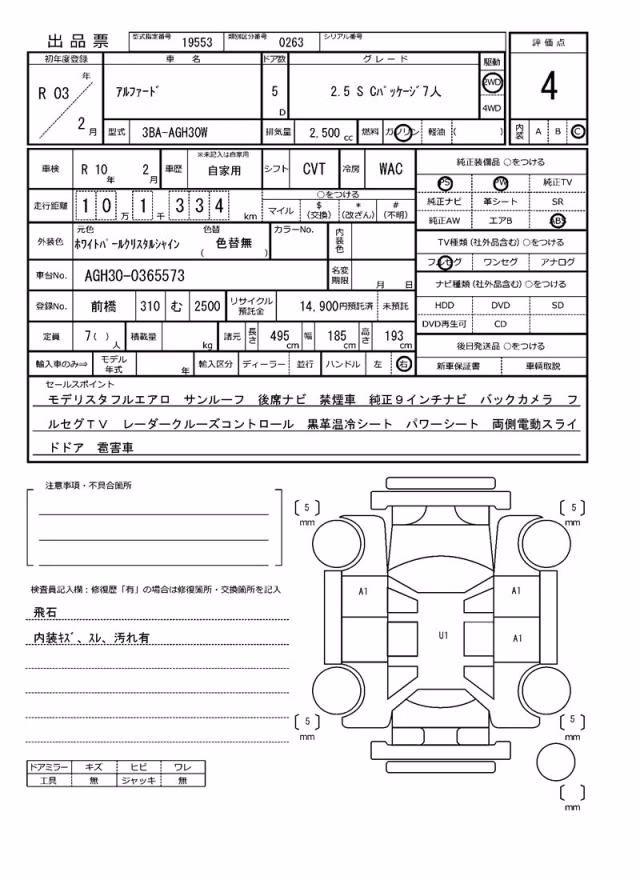 出品票 型式指定番号 19553 類別区分番号 0263 シリアル番号
評価点
初年度登録 車名 ドア数 グレード 駆動
R 03 年 2 月 アルファード 5 D 2.5 S Cパッケージ7人 2WD 4WD 4
型式 3BA-AGH30W 排気量 2,500 cc 燃料 ガソリン 軽油 ( ) 内装 A B C
車検 R 10 年 2 月 車歴 ※未記入は自家用 自家用 シフト CVT 冷房 WAC
走行距離 1 0 万 1 千 3 3 4 km ○をつける マイル $ (交換) * (改ざん) # (不明)
外装色 元色 ホワイトパールクリスタルシャイン 色替 ( 色替無 ) カラーNo. 内装色
車台No. AGH30-0365573 名変期限 月 日
登録No. 前橋 310 む 2500 リサイクル預託金 14,900円預託済 未預託
定員 7( ) 人 積載量 kg 諸元 長さ 495 cm 幅 185 cm 高さ 193 cm
輸入車のみ⇒ モデル年式 年 輸入区分 ディーラー 並行 ハンドル 左 右
純正装備品 ○をつける
PS PW 純正TV
純正ナビ 革シート SR
純正AW エアB ABS
TV種類 (社外品含む) ○をつける
フルセグ ワンセグ アナログ
ナビ種類 (社外品含む) ○をつける
HDD DVD SD
DVD再生可 CD
後日発送品 ○をつける
新車保証書 車輌取説
セールスポイント
モデリスタフルエアロ サンルーフ 後席ナビ 禁煙車 純正9インチナビ バックカメラ フ
ルセグTV レーダークルーズコントロール 黒革温冷シート パワーシート 両側電動スライ
ドドア 雹害車
注意事項・不具合箇所
検査員記入欄:修復歴「有」の場合は修復箇所・交換箇所を記入
飛石
内装キズ、スレ、汚れ有
ドアミラー キズ ヒビ ワレ
工具 無 ジャッキ 無
[ 5 ] mm [ 5 ] mm
A1 A1
U1 A1
[ 5 ] mm [ 5 ] mm
[ ] mm